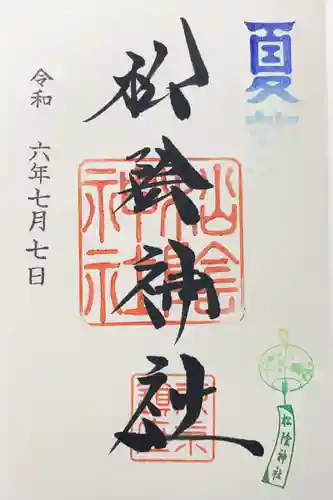 夏詣
松陰神社
松陰神社
令和 六年七月七日
松陰神社